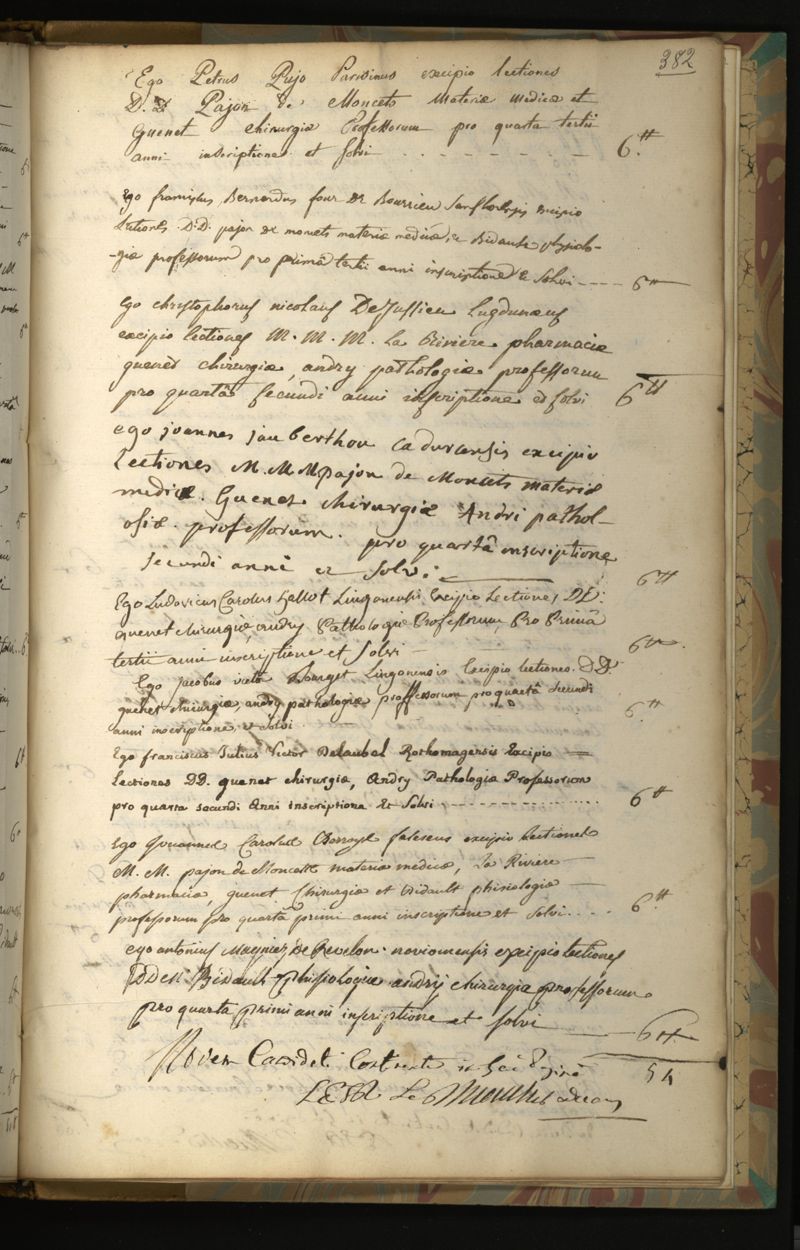 382
Ego Petrus Pujo Parisinus excipio lectiones
D. D Pajon de Monceto Materiæ medicæ et
Guenet chirurgiæ Professorum pro quarta tertii
anni inscriptione et solvi 6.tt
Ego franciscus Bernardus four De Bourrieu Sanfloresis excipio
lectiones D.D. pajon de moncets materiæ medicæ, & Bidault physiolo-
-giæ professorum pro primâ tertii anni inscriptione & solvi ---- 6tt
Ego christophorus nicolaus DeJussieu Lugdunæus
excipio lectiones M. M. M. La Riviere pharmaciæ
guenet chirurgiæ, andry pathologiæ professorum
pro quartâ secundi anni inscriptione et solvi 6tt
ego joannes jauberthou cadurcensis excipio
Lectiones M. M M pajon de Moncets materiæ
medicæ. Guenet chirurgiæ Andri pathol-
ogiæ. professorum. pro quartâ inscriptione
secundi anni et solvi. 6tt
Ego Ludovicus Carolus hellot Lingonensis Excipio Lectiones DD.
guenet chirurgiæ, andry Pathologiæ Professorum, Pro Primâ
tertii anni inscriptione et Solvi - 6tt.
Ego jacobus Bourget Lingonensis Excipio lectiones. DD.
guenet chirurgiæ, andry pathologiæ proffessorum pro quartâ secundi
anni inscriptione, et solvi 6.tt
Ego franciscus Julius Victor Delaubel Rothomagensis Excipio
Lectiones DD. guenet chirurgiæ, Andry Pathologiæ Professorum
pro quarta secundi Anni inscriptione Et Solvi 6tt
Ego Joannes Carolus faleseus excipio lectiones
M. M. pajon de Moncets materiæ medicæ, La Riviere
pharmaciæ, guenet Chirurgiæ et Bidault phisiologiæ
professorum pro quartâ primi anni inscriptione et solvi.... 6tt
ego antonius Magniez de Revelon noviomensis excipio lectiones
DD Bidault phisiologiæ andry chirurgiæ professorum
pro quarta primi anni inscriptione et solvi 6tt
Novem Candidati 54
Le